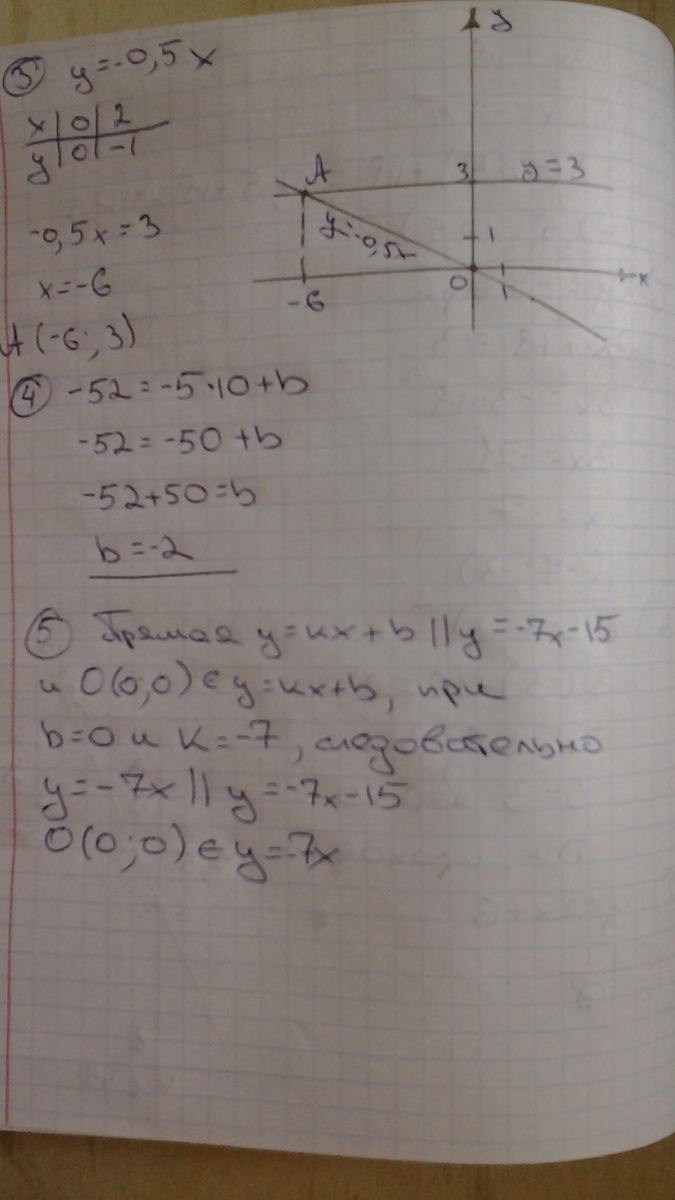 ③ y=-0,5x
x | 0 | 2
y | 0 | -1
-0,5x=3
x=-6
A(-6; 3)
y
A
3
y=3
y=-0,5x
1
-6
0
1
x
④ -52=-5·10+b
-52=-50+b
-52+50=b
b=-2
⑤ Прямая y=kx+b || y=-7x-15
и O(0;0) ∈ y=kx+b, при
b=0 и k=-7, следовательно
y=-7x || y=-7x-15
O(0;0) ∈ y=-7x